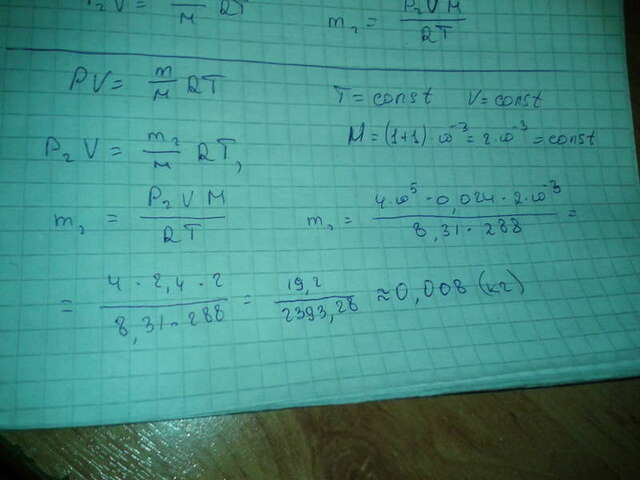 P₂V = m/M RT
m₂ = P₂VM/RT
PV = m/M RT
T = const V = const
M = (1+1)·10⁻³ = 2·10⁻³ = const
P₂V = m₂/M RT,
m₂ = P₂VM/RT
m₂ = 4·10⁵·0,024·2·10⁻³/8,31·288 =
= 4·2,4·2/8,31·288 = 19,2/2393,28 ≈ 0,008 (кг)